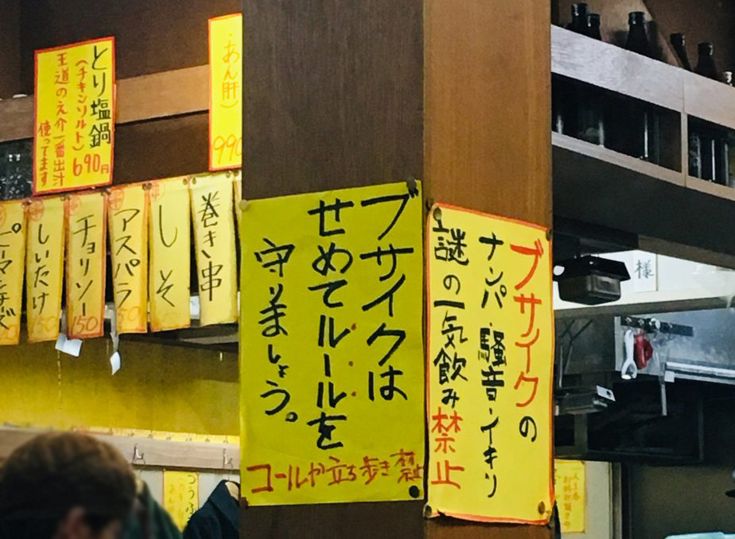 とり塩鍋
(チキンソルト) 690円
王道の之介一番出汁
使ってます
あん肝
990
巻き串
しそ
アスパラ
150
チョリソー
150
しいたけ
150
ピーマン
ブサイクは
せめてルールを
守りましょう。
コールや立ち歩き禁
ブサイクの
ナンパ・騒音・イキリ
謎の一気飲み禁止
様